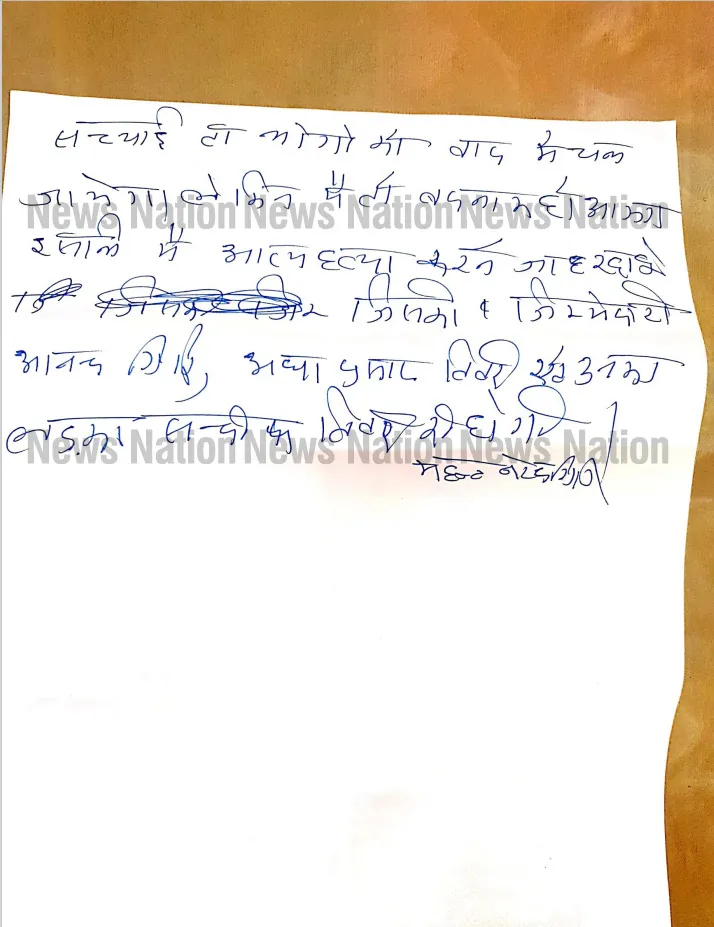 सच्चाई तो लोगो को बाद मे चल
जायेगा लेकिन मै तो बदनाम हो जाऊगा
इसलि मै आत्महत्या करने जा रहा हूँ
जिसकी जिम्मेदारी
आनन्द गिरि, आधा प्रसाद तिवारी एवं उनका
लड़का सन्दीप तिवारी की होगी
महन्त नरेन्द्र गिरि
News Nation News Nation News Nation
News Nation News Nation News Nation